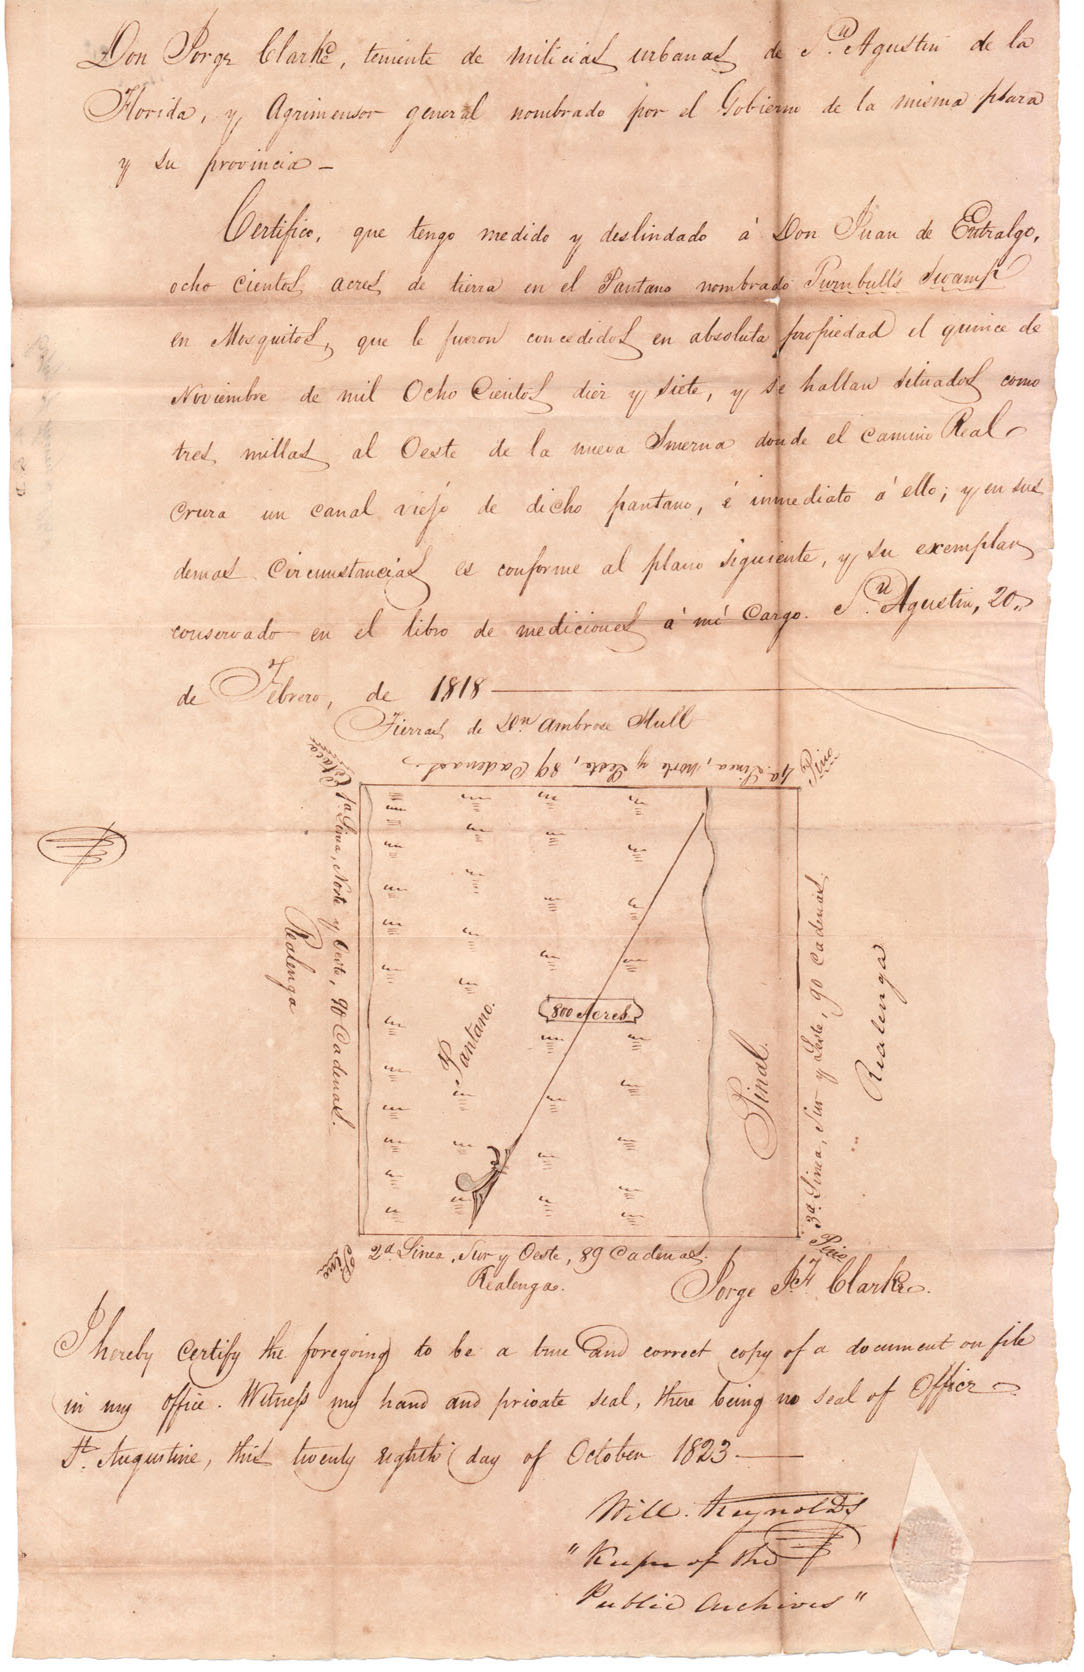 Don Jorge Clarke, teniente de milicias urbanas de Sn. Agustin de la
Florida, y Agrimensor general nombrado por el Gobierno de la misma plaza
y su provincia —
Certifico, que tengo medido y deslindado á Don Juan de Entralgo,
ocho cientos acres de tierra en el Pantano nombrado Turnbull's Swamp
en Mosquitos, que le fueron concedidos en absoluta propiedad el quince de
Noviembre de mil Ocho Cientos diez y siete, y se hallan situados como
tres millas al Oeste de la nueva Smerna donde el camino Real
cruza un canal viejo de dicho pantano, é inmediato á ello; y en sus
demas Circumstancias es conforme al plano siguiente, y su exemplar
conservado en el libro de mediciones á mi Cargo. Sn. Agustin, 20
de Febrero, de 1818
Tierras de Dn. Ambrose Hull
4a. Linea, Norte y Leste, 89 Cadenas
Pino
Estaca
1a. Linea, Norte y Oeste, 90 Cadenas.
Realenga
Pantano.
800 Acres
Pinal.
3a. Linea, Sur y Leste, 90 Cadenas.
Realenga
Pino
2d. Linea, Sur y Oeste, 89 Cadenas.
Pino
Realenga.
Jorge J. F. Clarke.
I hereby certify the foregoing to be a true and correct copy of a document on file
in my office. Witness my hand and private seal, there being no seal of Office
St. Augustine, this twenty eighth day of October 1823
Will. Reynolds
"Keeper of the
Public Archives"